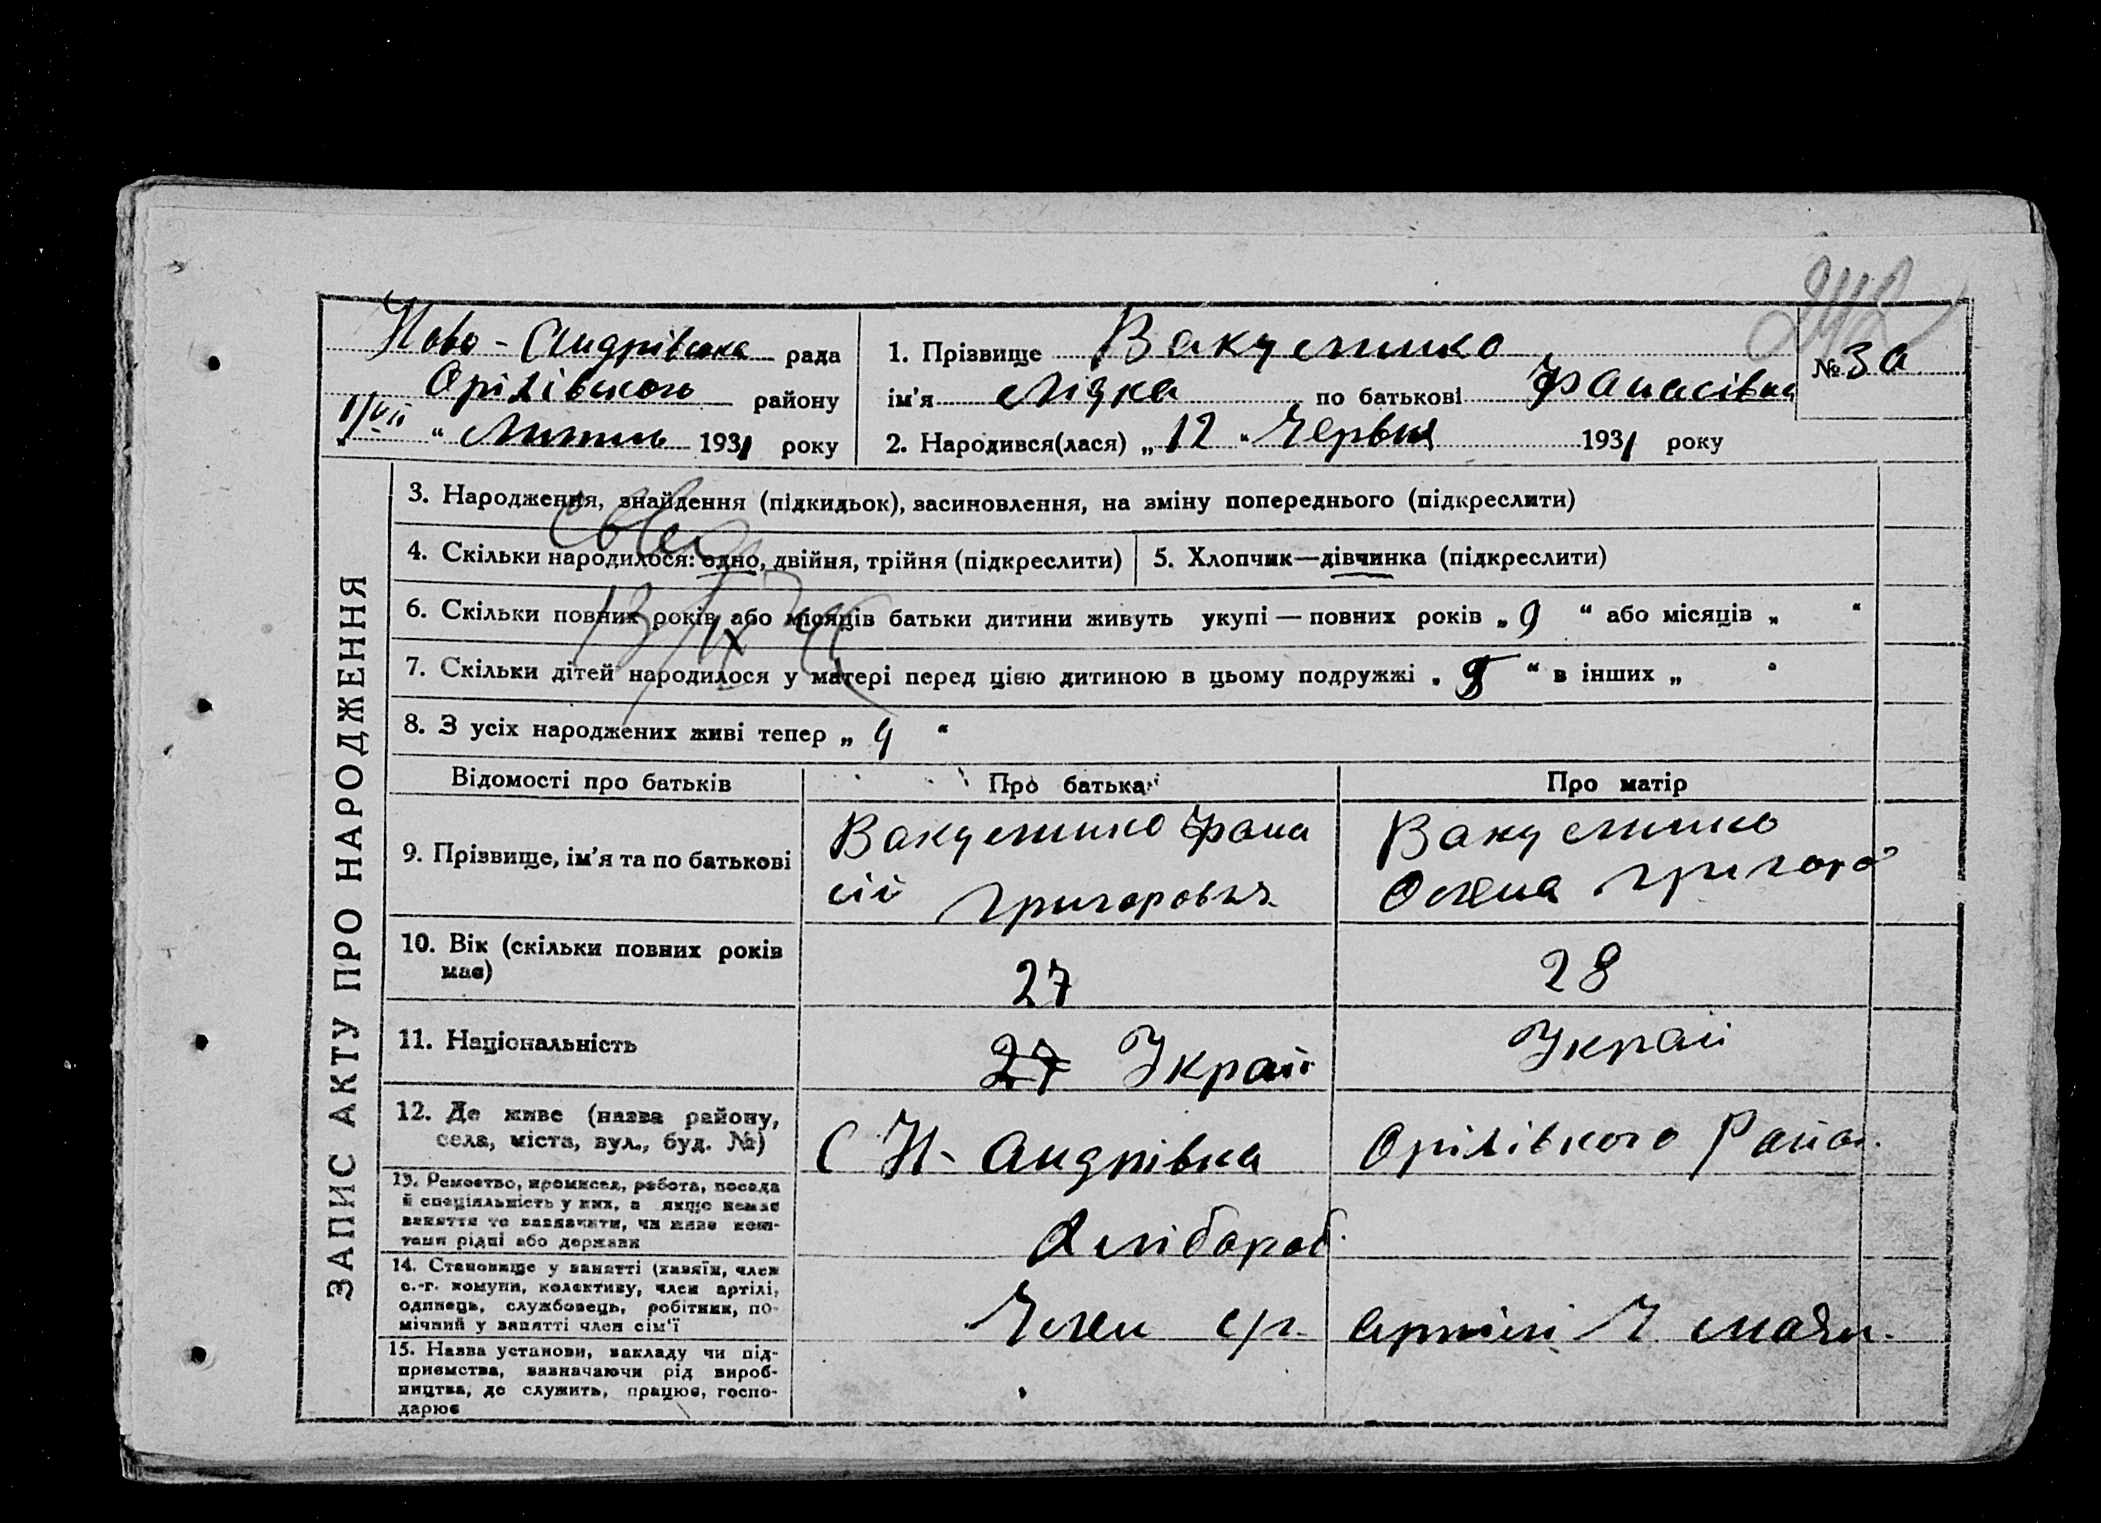 Ново-Андрівська рада
Орілівського району
1/VII " Липень 1931 року
1. Прізвище Вакуленко
№ 30
ім'я Лізка по батькові Фанасівна
2. Народився(лася) „ 12 " Червня 1931 року
ЗАПИС АКТУ ПРО НАРОДЖЕННЯ
3. Народження, знайдення (підкидьок), засиновлення, на зміну попереднього (підкреслити)
4. Скільки народилося: одно, двійня, трійня (підкреслити)
5. Хлопчик—дівчинка (підкреслити)
6. Скільки повних років або місяців батьки дитини живуть укупі — повних років „ 9 " або місяців „ "
7. Скільки дітей народилося у матері перед цією дитиною в цьому подружжі „ " в інших „ "
8. З усіх народжених живі тепер „ 4 "
Відомості про батьків
Про батька
Про матір
9. Прізвище, ім'я та по батькові
Вакуленко Фана
сій Григорович
Вакуленко
Олена Григоро
10. Вік (скільки повних років
має)
27
28
11. Національність
27 Украї
Украї
12. Де живе (назва району,
села, міста, вул., буд. №)
С Н-Андрівка
Орілівкого Район.
13. Ремество, промисел, робота, посада
й спеціяльність у них, а якщо немає
заняття то зазначити, чи живе кош-
тами рідні або держави
Хлібороб.
14. Становище у занятті (хазяїн, член
с.-г. комуни, колективу, член артілі,
одинець, службовець, робітник, по-
мічний у занятті член сім'ї
Член с/г. артілі Ч маяк.
15. Назва установи, закладу чи під-
приємства, зазначаючи рід вироб-
ництва, де служить, працює, госпо-
дарює